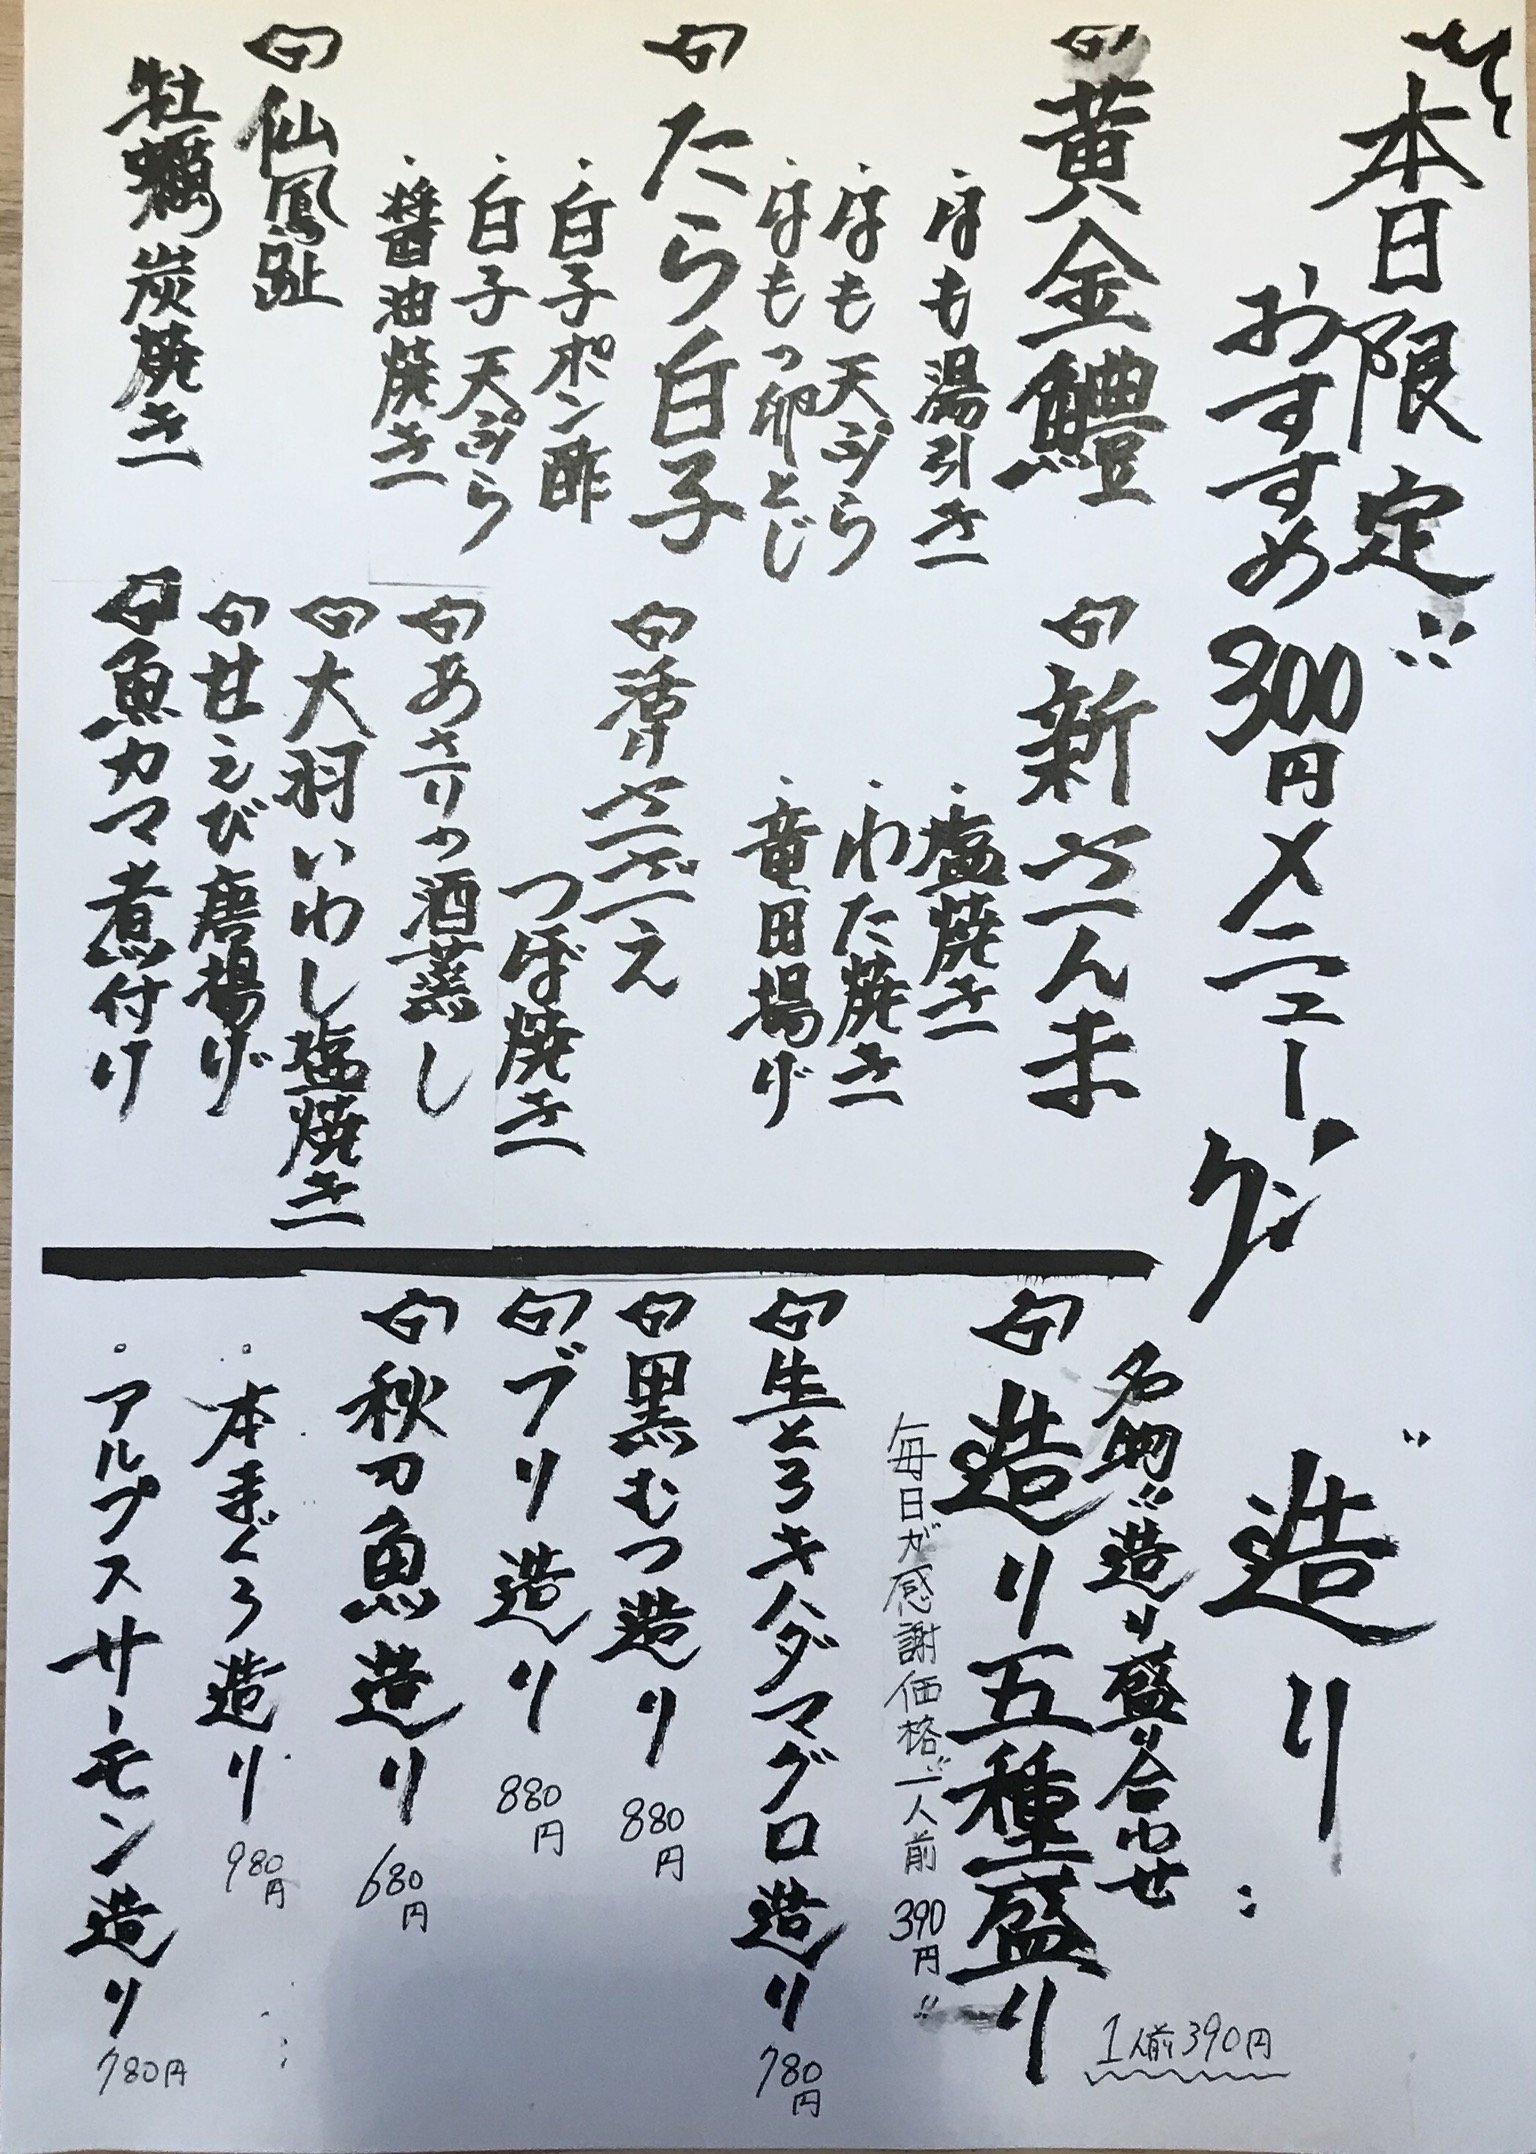 本日限定
おすすめ300円メニュー
黄金鱧
・はも湯引き
・はも天ぷら
・はもつ卵とじ
たら白子
・白子ポン酢
・白子天ぷら
・醤油焼き
仙鳳趾
牡蠣炭焼き
新さんま
・塩焼き
・わた焼き
・竜田揚げ
活けさざえ
つぼ焼き
あさりの酒蒸し
大羽いわし塩焼き
甘えび唐揚げ
魚カマ煮付け
造り
名物"造り盛り合わせ
1人前390円
造り五種盛り
毎日が感謝価格"一人前390円"
生とろキハダマグロ造り780円
黒むつ造り880円
ブリ造り880円
秋刀魚造り680円
・本まぐろ造り980円
・アルプスサーモン造り780円